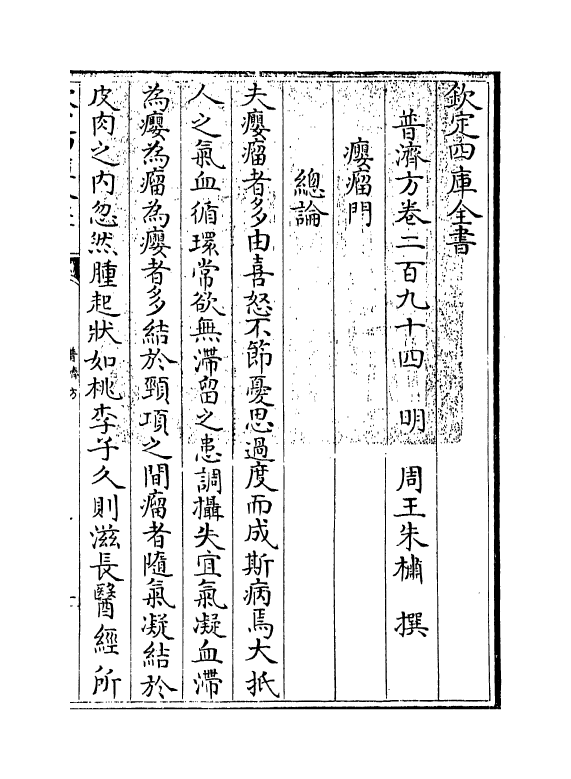 欽定四庫全書
普濟方卷二百九十四　明　周王朱橚　撰
癭瘤門
總論
夫癭瘤者多由喜怒不節憂思過度而成斯病焉大抵
人之氣血循環常欲無滯留之患調攝失宜氣凝血滯
為癭為瘤為癭者多結於頸項之間瘤者隨氣凝結於
皮肉之内忽然腫起狀如桃李子久則滋長醫經所
普濟方